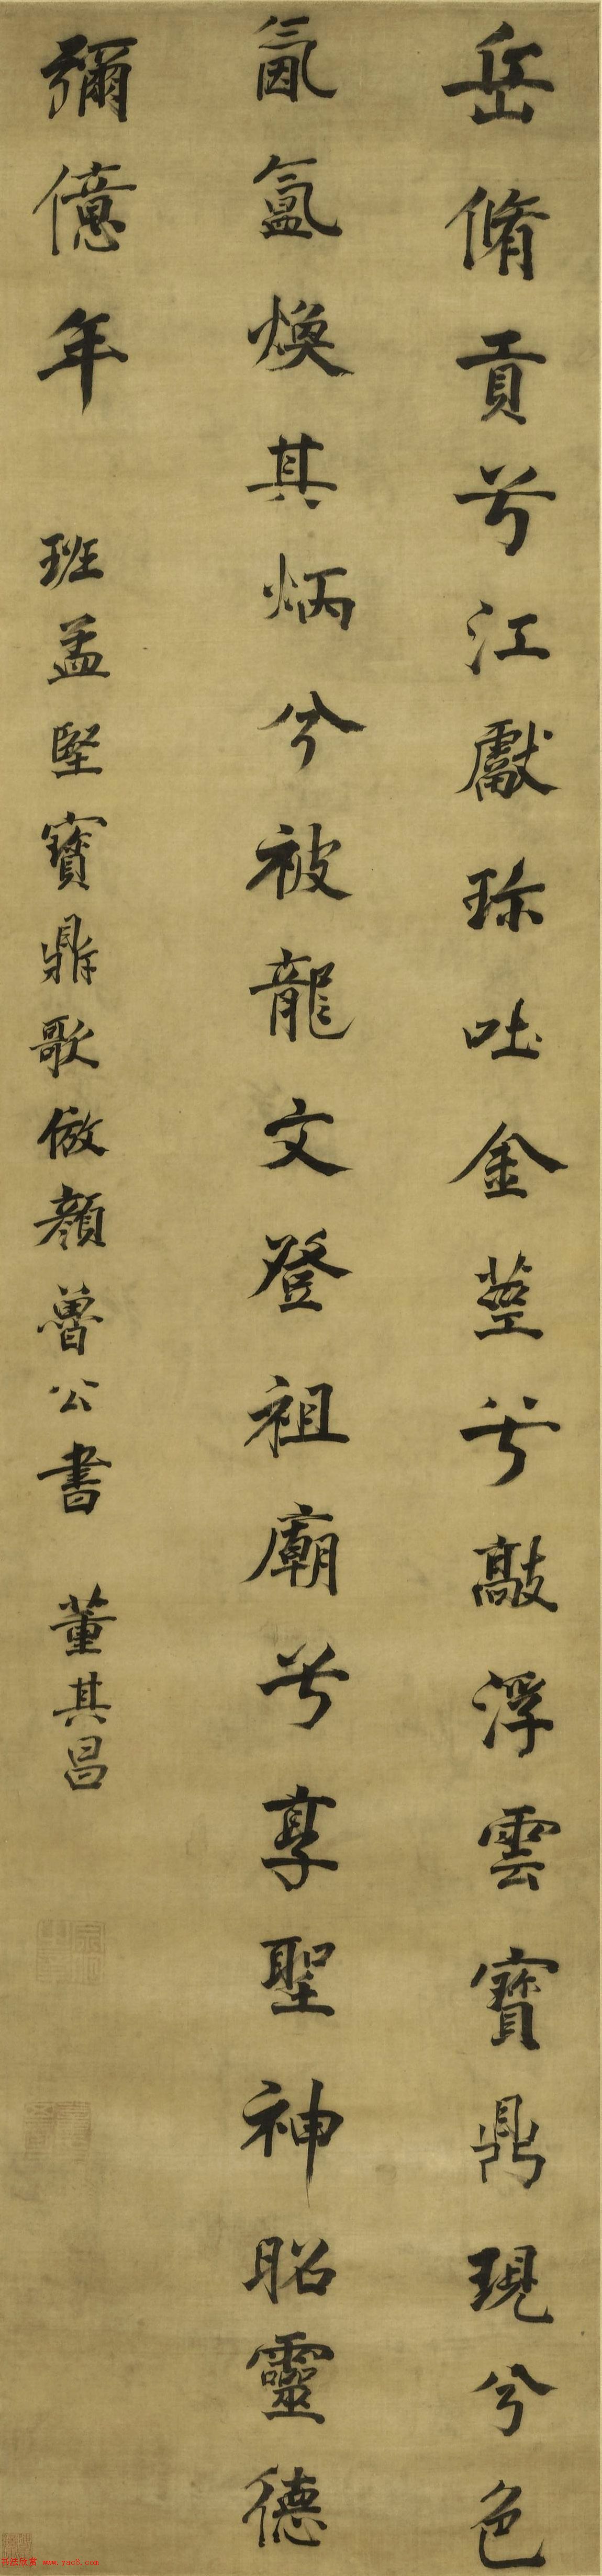 岳脩貢兮江獻珎吐金莖兮敲浮雲寶鼎現兮色
氤氳煥其炳兮被龍文登祖廟兮享聖神昭靈德
彌億年 班孟堅寶鼎歌倣顏魯公書 董其昌
www.yac8.com